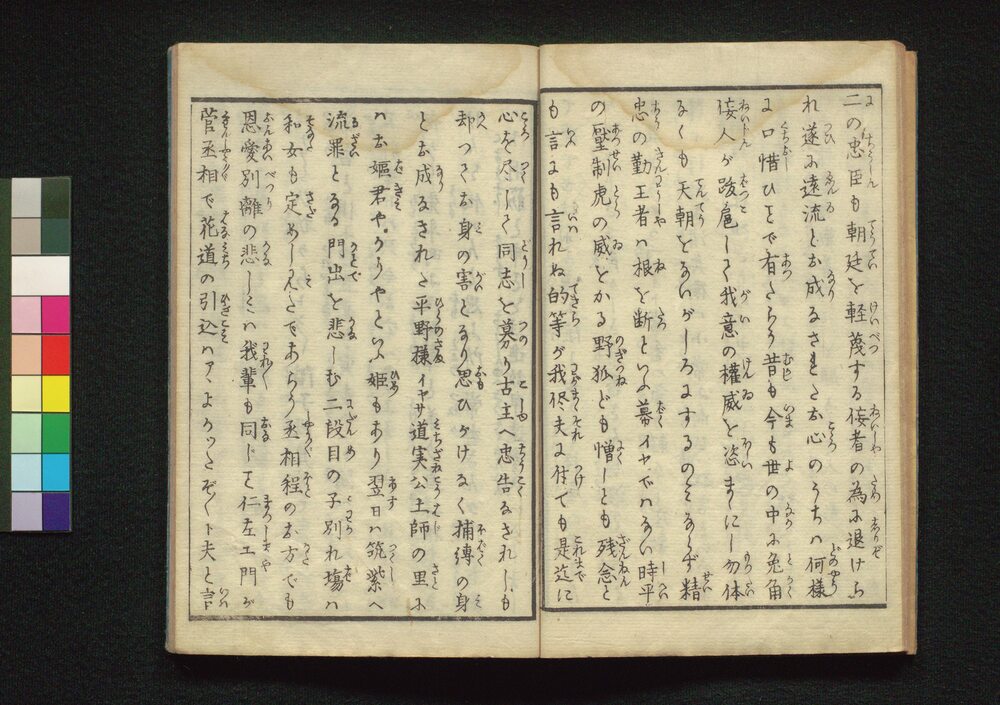 二の忠臣も朝廷を軽蔑する佞者の為に退けら
れ遂に遠流とお成なされたお心のうちは何様
に口惜ひことで有たらう昔も今も世の中に兎角
佞人が跋扈して我意の權威を恣まにし勿体
なくも天朝をないがしろにするのみならず精
忠の勤王者は根を断といふ幕イヤではない時平
の壓制虎の威をかる野狐ども憎しとも残念と
も言にも言れぬ的等が我侭夫に付ても是迄に
心を尽して同志を募り古主へ忠告なされしも
却つてお身の害となり思ひがけなく捕縛の身
とお成なされた平野様イヤサ道実公土師の里に
はお嫗君や。かうやといふ姫もあり翌日は筑紫へ
流罪となる門出を悲しむ二段目の子別れ場は
和女も定めし見たであらう丞相程のお方でも
恩愛別離の悲しみは我輩も同じこと仁左エ門が
菅丞相で花道の引込はアヽよかつたぞくト夫と言